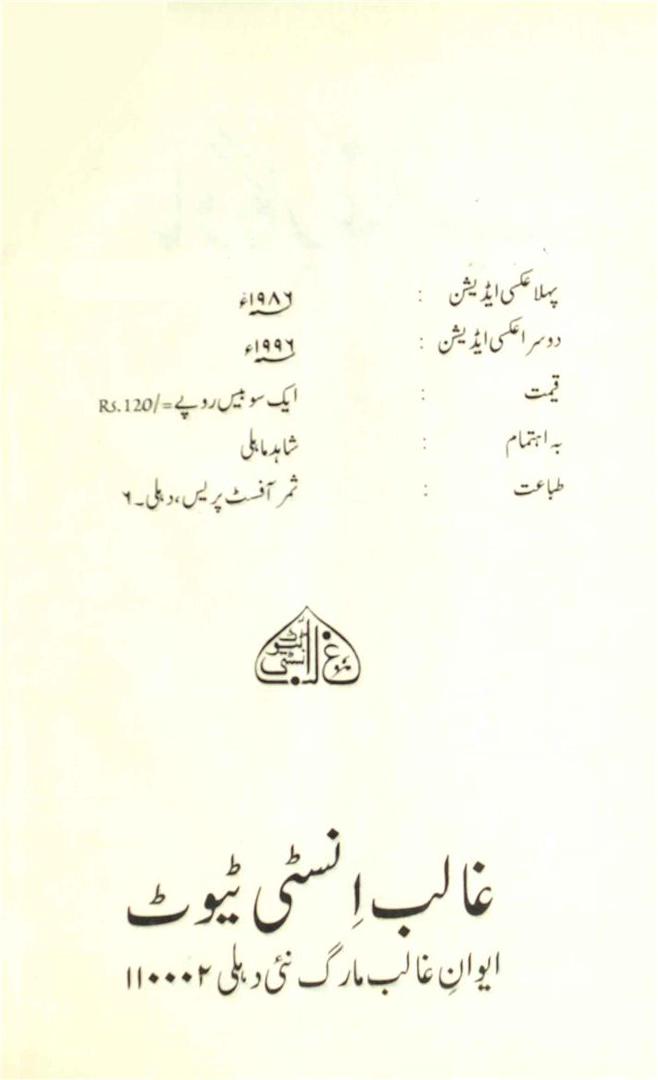 پہلا عکسی ایڈیشن : ۱۹۸۶ء
دوسرا عکسی ایڈیشن : ۱۹۹۶ء
قیمت : ایک سو بیس روپے =/Rs.120
بہ اہتمام : شاہد ماہلی
طباعت : ثمر آفسٹ پریس، دہلی۔۶
غالب انسٹی ٹیوٹ
غالب اِنسٹی ٹیوٹ
ایوانِ غالب مارگ نئی دہلی ۱۱۰۰۰۲